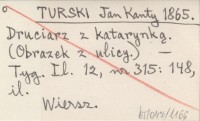 TURSKI Jan Kanty 1865.
Druciarz z katarynką.
(Obrazek z ulicy.) —
Tyg. Il. 12, nr 315: 148,
il.
Wiersz.